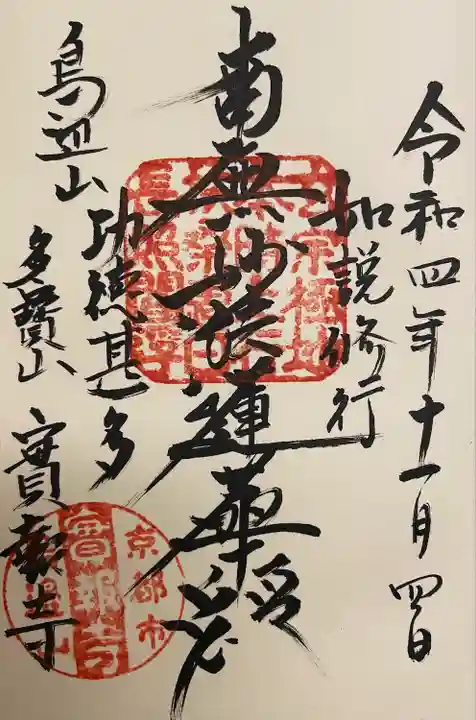 令和四年十一月四日
如説修行
南無妙法蓮華経
功徳甚多
鳥辺山
多寶山
實報寺
京都市
實報寺